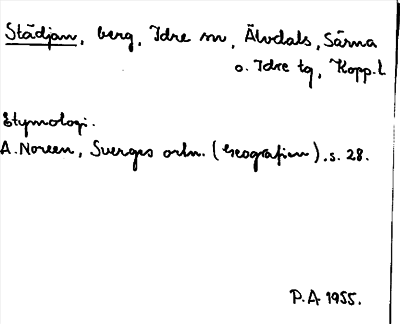 Städjan, berg, Idre sn, Älvdals, Särna
o. Idre tg, Kopp. l.
Etymologi.
A. Noreen, Sverges ortn. (Geografien). s. 28.
P.A 1955.